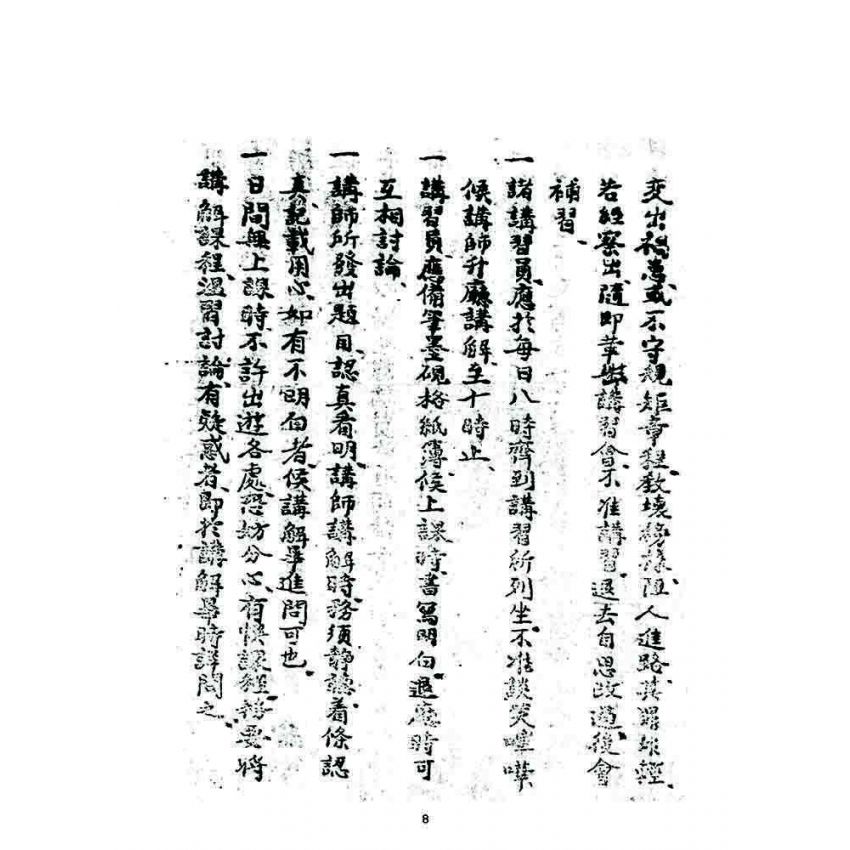 交出禍患或不守規矩章程敎壞榜樣阻人進路其罪非輕
若經察出、隨即革出講習會、不准講習、退去自思改過、後會
補習、
一 諸講習員、應於每日八時齊到講習所列坐、不准談笑嘩嘩
候講師升廳講解、至十時止、
一 講習員應備筆墨硯格紙簿、候上課時、書寫明白、退廳時可
互相討論、
一 講師所發出題目、認真看明、講師講解時、務須靜聽、着條認
真記載用心、如有不明白者、候講解畢進問可也、
一 日間無上課時、不許出遊各處、恐妨分心、有悞課程、務要將
講解課程、溫習討論、有疑惑者、即於講解畢時詳問之、
8